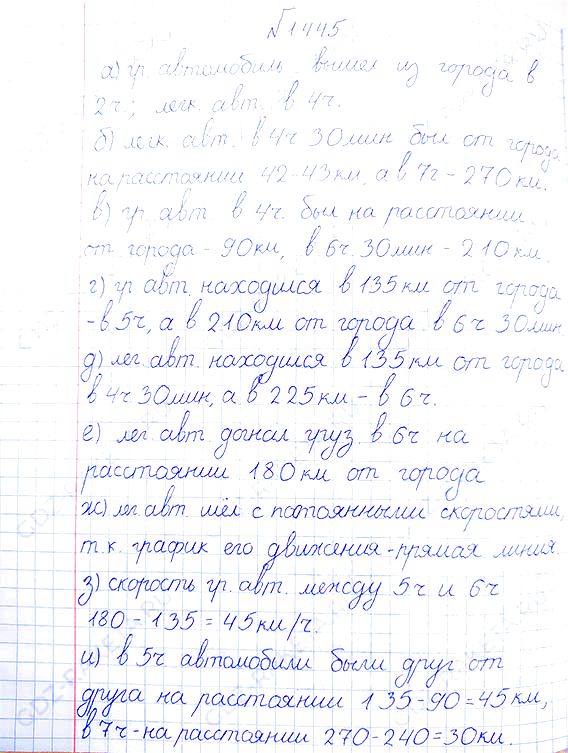 №1445
а) гр. автомобиль вышел из города в
2ч.; легк. авт. в 4ч.
б) легк. авт. в 4ч 30мин был от города
на расстоянии 42-43км, а в 7ч - 270км.
в) гр. авт. в 4ч. был на расстоянии
от города - 90км, в 6ч. 30мин - 210км.
г) гр. авт. находился в 135км от города
- в 5ч, а в 210км от города в 6ч 30мин
д) лег. авт. находился в 135км от города
в 4ч 30мин, а в 225км - в 6ч.
е) лег. авт. догнал груз. в 6ч на
расстоянии 180км от города
ж) лег. авт. шёл с постоянными скоростями,
т.к. график его движения - прямая линия.
з) скорость гр. авт. между 5ч и 6ч
180 - 135 = 45км/ч.
и) в 5ч автомобили были друг от
друга на расстоянии 135-90=45км,
в 7ч - на расстоянии 270-240=30км.